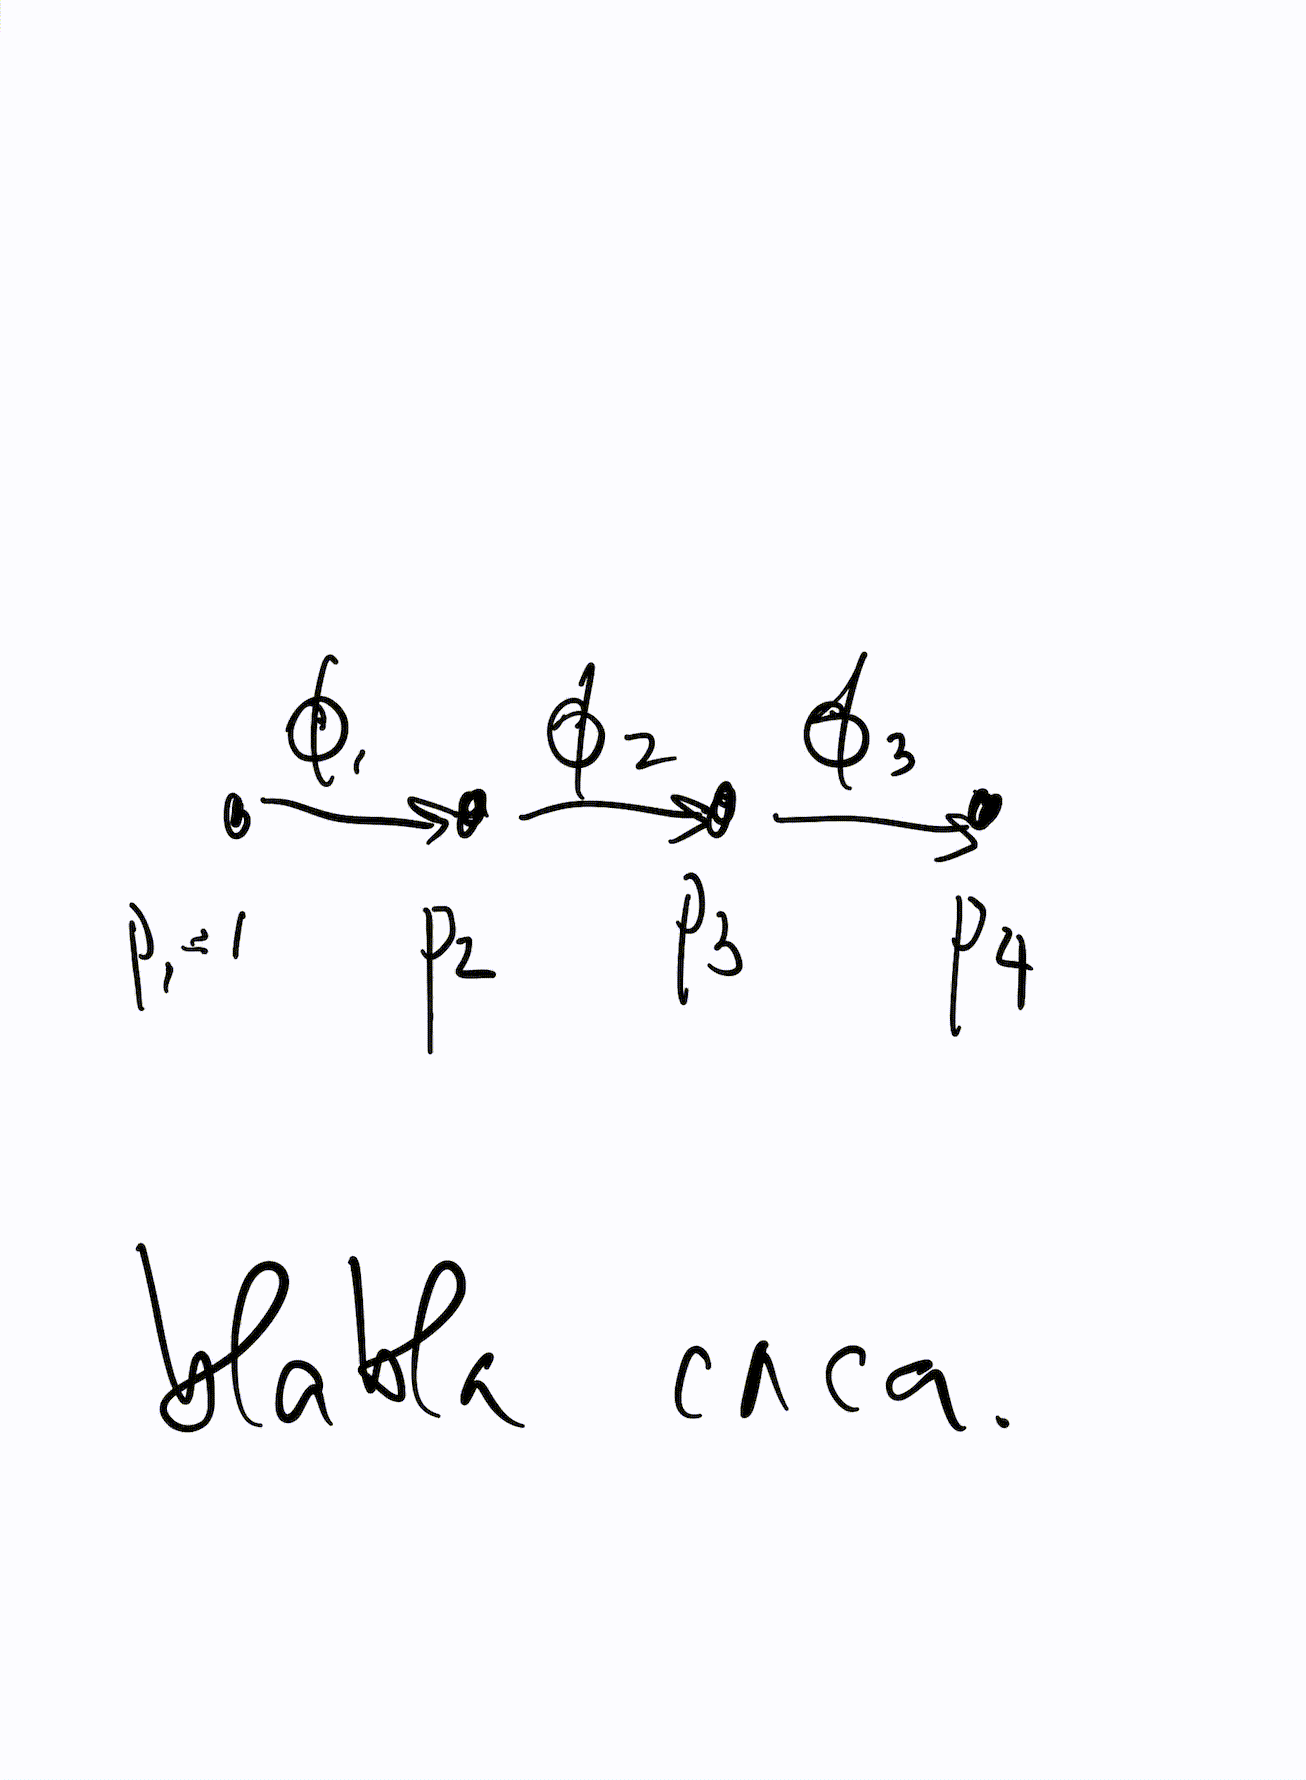 ϕ₁ ϕ₂ ϕ₃
p₁=1 p₂ p₃ p₄
blabla caca.